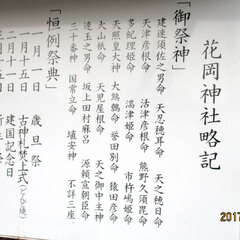 花岡神社略記
「御祭神」
建速須佐之男命　天忍穂耳命　天之穂日命
天津彦根命　活津彦根命　熊野久須毘命
多紀理姫命　湍津姫命　市杵嶋姫命
天照皇大神　大鷦鷯命　誉田別命　猿田彦命
大山祇命　天児屋根命　天之御中主神
速玉之男命　坂上田村麻呂　源頼宣朝臣命
三十番神　国常立命　埴安神　不詳三座
「恒例祭典」
一月一日　歳旦祭
一月十五日　古神札焚上式（どんど焼）
二月十一日　建国記念日
2017